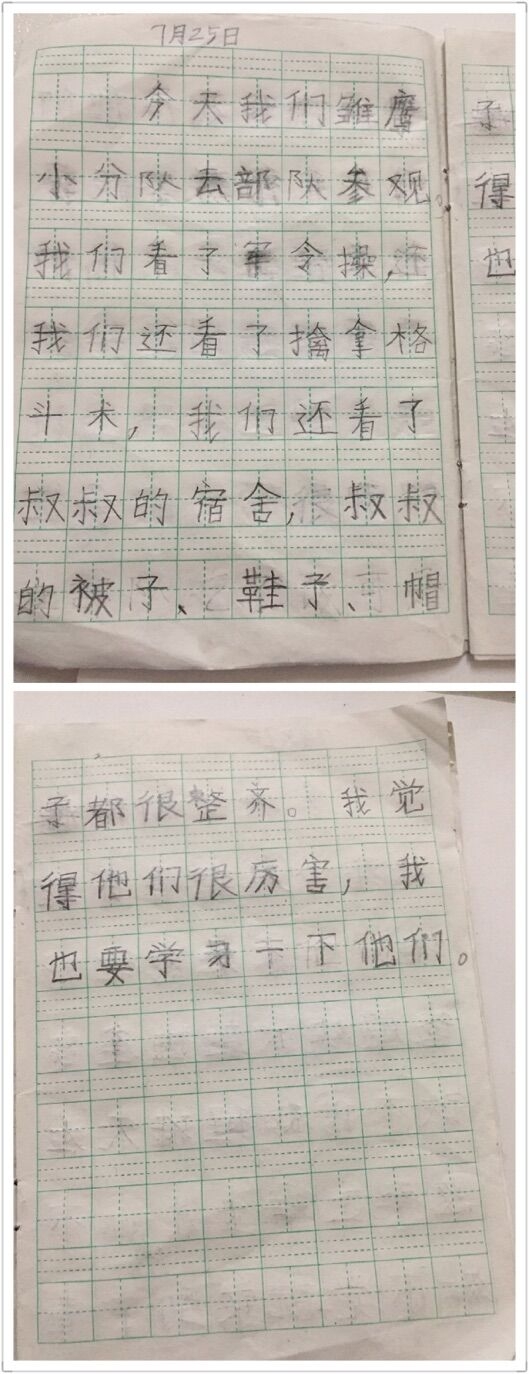 7月25日
今天我们雏鹰
小分队去部队参观。
我们看了军令操,
我们还看了擒拿格
斗术,我们还看了
叔叔的宿舍,叔叔
的被子、鞋子、帽
子
得
也
子都很整齐。我觉
得他们很厉害,我
也要学习一下他们。